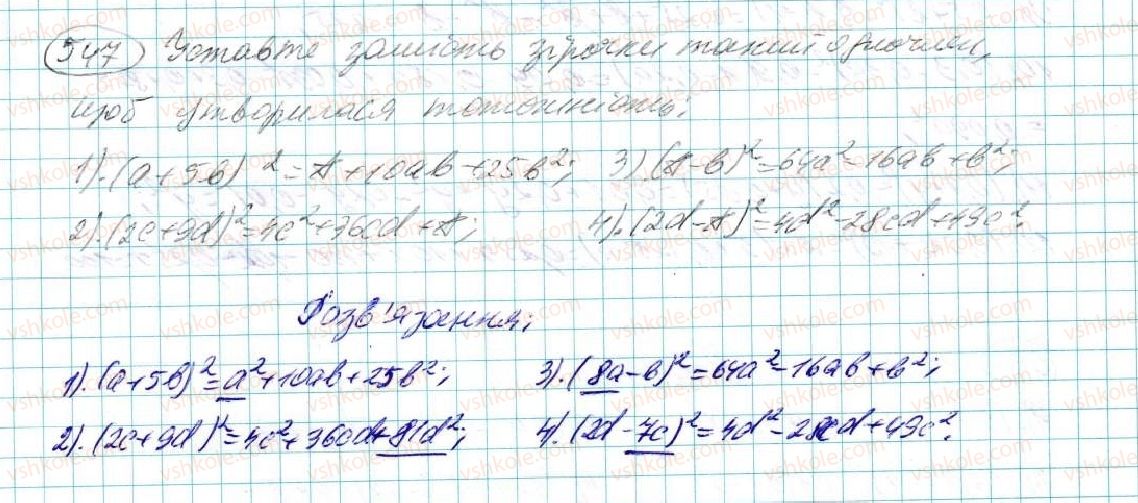 547 Уставте замість зірочки такий одночлен,
щоб утворилася тотожність:
1). (a+5b)²=*+10ab+25b²; 3). (*-b)²=64a²-16ab+b²;
2). (2c+9d)²=4c²+36cd+*; 4). (2d-*)²=4d²-28cd+49c².
Розв'язання;
1). (a+5b)²=a²+10ab+25b²; 3). (8a-b)²=64a²-16ab+b²;
2). (2c+9d)²=4c²+36cd+81d²; 4). (2d-7c)²=4d²-28cd+49c².
vshkole.com